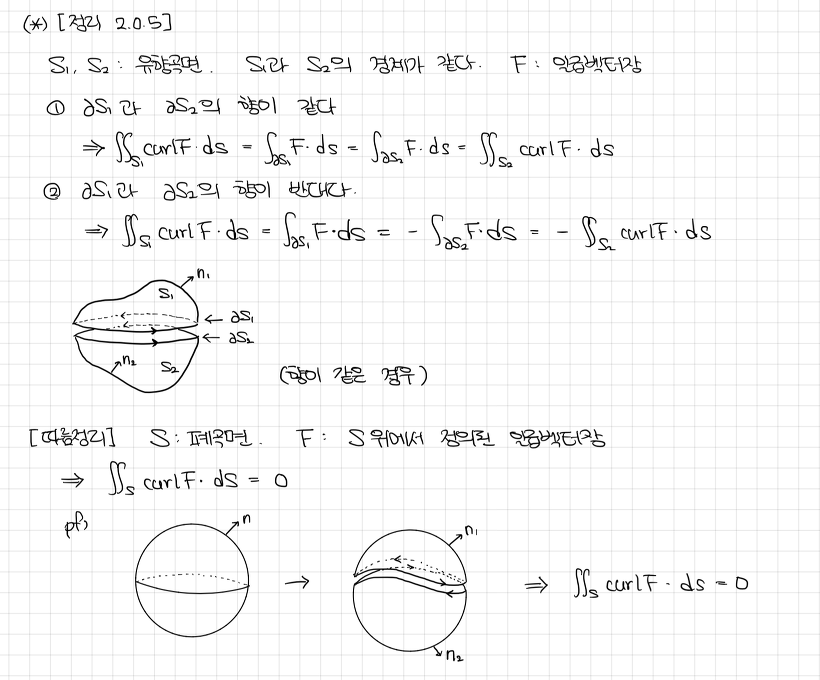 (*) [정리 2.0.5]
S₁, S₂ : 유향곡면. S₁과 S₂의 경계가 같다. F : 일급벡터장
① ∂S₁과 ∂S₂의 향이 같다
⇒ ∬_S₁ curl F · dS = ∫_∂S₁ F · ds = ∫_∂S₂ F · ds = ∬_S₂ curl F · dS
② ∂S₁과 ∂S₂의 향이 반대다.
⇒ ∬_S₁ curl F · dS = ∫_∂S₁ F · ds = - ∫_∂S₂ F · ds = - ∬_S₂ curl F · dS
n₁
S₁
← ∂S₁
← ∂S₂
n₂ S₂
(향이 같은 경우)
[따름정리] S : 폐곡면. F : S 위에서 정의된 일급벡터장
⇒ ∬_S curl F · dS = 0
pf)
n → n₁ ⇒ ∬_S curl F · dS = 0
n₂